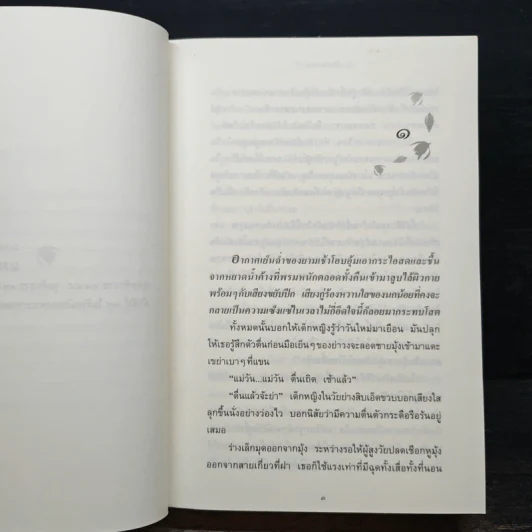 ๑
อากาศเย็นฉ่ำของยามเช้าโอบอุ้มเอากระไอสดและชื้น
จากหยาดน้ำค้างที่พรมหนักตลอดทั้งคืนเข้ามาลูบไล้ผิวกาย
พร้อมๆกับเสียงขยับปีก เสียงกู่ร้องหวานใสของนกน้อยที่คงจะ
กลายเป็นความเซ็งแซ่ในเวลาไม่กี่อึดใจนี้ก็ลอยมากระทบโสต
ทั้งหมดนั้นบอกให้เด็กหญิงรู้ว่าวันใหม่มาเยือน มันปลุก
ให้เธอรู้สึกตัวตื่นก่อนมือเย็นๆของย่าวงจะลอดชายมุ้งเข้ามาแตะ
เขย่าเบาๆที่แขน
“แม่วัน...แม่วัน ตื่นเถิด เช้าแล้ว”
“ตื่นแล้วจ้ะย่า” เด็กหญิงในวัยย่างสิบเอ็ดขวบบอกเสียงใส
ลุกขึ้นนั่งอย่างว่องไว บอกนิสัยว่ามีความตื่นตัวกระตือรือร้นอยู่
เสมอ
ร่างเล็กมุดออกจากมุ้ง ระหว่างรอให้ผู้สูงวัยปลดเชือกหูมุ้ง
ออกจากสายเกี่ยวที่ฝา เธอก็ใช้แรงเท่าที่มีฉุดทั้งเสื่อทั้งที่นอน